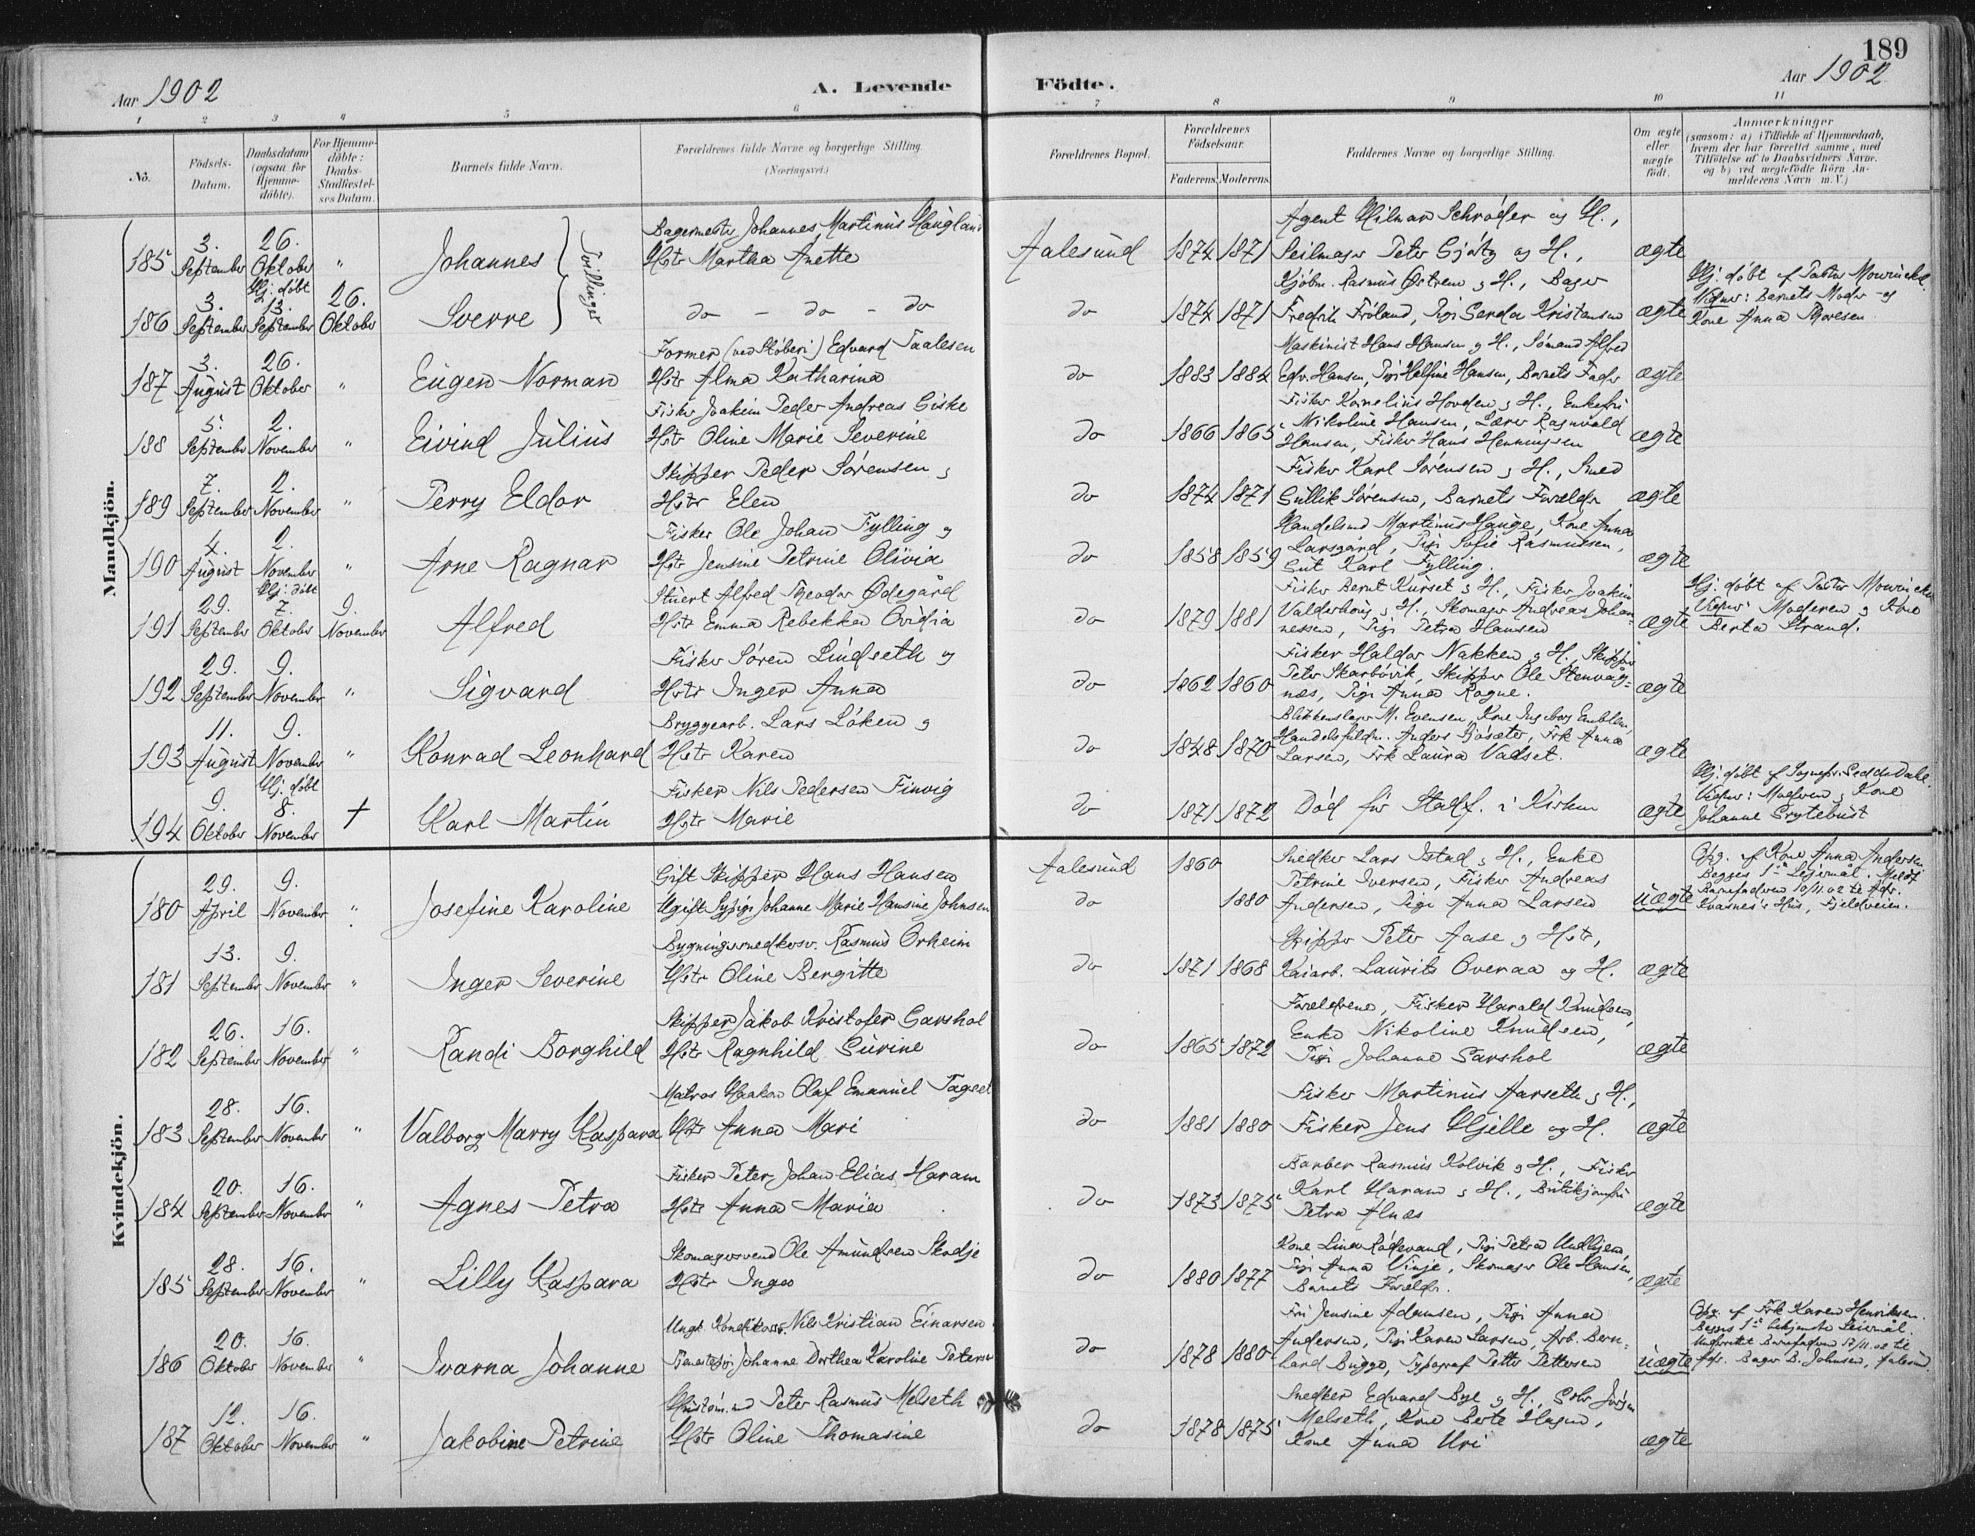 189
Aar 1902
A. Levende
Födte.
Aar 1902
1 2 3 4 5 6 7 8 9 10 11
No.
Födsels-Datum.
Daabsdatum (ogsaa for Hjemmedøbte).
For Hjemmedøbte: Daabs-Stadfæstelses Datum.
Barnets fulde Navn.
Forældrenes fulde Navne og borgerlige Stilling.
(Næringsvei.)
Forældrenes Bopæl.
Forældrenes Födselsaar.
Faderens. Moderens.
Faddernes Navne og borgerlige Stilling.
Om ægte eller uægte födt.
Anmærkninger
(saasom: a) i Tilfælde af Hjemmedaab,
hvem der har forrettet samme, med
Tilföielse af to Daabsvidners Navne,
og b) ved uægtefödte Börn An-
melderens Navn m. V.)
Mandkjön.
185 3. September 26. Oktober " Johannes
Tvillinger
Bagermester Johannes Martinus Haugland
Hstr Martha Anette
Aalesund 1874 1871
Agent Hilmar Schrøder og H.,
Seilmager Peter Gjørtz og H.,
Kjøbm. Rasmus Østrem og H., Bager
ægte
186 3. September Hj. døbt 13. September 26. Oktober Sverre
do - do - do
do 1874 1871
Fredrik Fröland, Pige Gerda Kristensen
ægte
Hj. døbt af Pastor Mowinckel.
Vidner: Barnets Moder og
Kone Anna Thoresen
187 3. August 26. Oktober " Eugen Norman
Former (ved Støberi) Edvard Paalesen
Hstr Alma Katharina
do 1883 1884
Maskinist Hans Hansen og H., Sømand Alfred
Edv. Hansen, Pige Helfine Hansen, Barnets Fader
ægte
188 5. September 2. November " Eivind Julius
Fisker Joakim Peder Andreas Giske
Hstr Oline Marie Severine
do 1866 1865
Fisker Kornelius Hovden og H., Enkefru
Nikoline Hansen, Lærer Ragnvald
Hansen, Fisker Hans Henningsen
ægte
189 7. September 2. November " Perry Eldor
Skipper Peder Sørensen og
Hstr Elen
do 1874 1871
Fisker Karl Sørensen og H., Smed
Gullik Sørensen, Barnets Forældre
ægte
190 4. August 2. November " Arne Ragnar
Fisker Ole Johan Fylling og
Hstr Jensine Petrine Olivia
do 1858 1859
Handelsmd Martinus Hauge, Kone Anna
Larsgård, Pige Sofie Rasmussen,
Gut Karl Fylling.
ægte
191 29. September Hj. døbt 7. Oktober 9. November Alfred
Stuert Alfred Theodor Ødegård
Hstr Emma Rebekka Ovidia
do 1879 1881
Fisker Bernt Kurset og H., Fisker Joakim
Valderhoug og H., Skomager Andreas Johan-
nessen, Pige Petra Hansen
ægte
Hj. døbt af Pastor Mowinckel
Vidner: Moderen og Kone
Berta Strand.
192 29. September 9. November " Sigvard
Fisker Søren Lindseth og
Hstr Inger Anna
do 1862 1860
Fisker Haldor Nakken og H., Skipper
Peter Skarbövik, Skipper Ole Stenvåg-
næs, Pige Anna Rogne.
ægte
193 11. August 9. November " Konrad Leonhard
Bryggearb. Lars Löken og
Hstr Karen
do 1848 1870
Blikkenslager M. Evensen, Kone Ingeborg Emblem,
Handelsfuldm. Anders Gjösæter, Frk Anna
Larsen, Frk Laura Vadset.
ægte
194 9. Oktober Hj. døbt 8. November † Karl Martin
Fisker Nils Pedersen Finvig
Hstr Marie
do 1871 1872
Död för Stadf. i Kirken
ægte
Hj. døbt af Sognepr. Dale.
Vidner: Moderen og Kone
Johanne Grytebust
Kvindekjön.
180 29. April 9. November " Josefine Karoline
Gift Skipper Hans Hansen
Ugift Sypige Johanne Marie Hansine Johnsen
Aalesund 1860
do 1880
Snedker Lars Istad og H., Enke
Petrine Iversen, Fisker Andreas
Andersen, Pige Anna Larsen
uægte
Opg. af Kone Anna Andersen
Begges 1ste Leiermål. Meldt
Barnefaderen 10/11 02 til Adr.
Kvasnes's Hus, Fjeldveien.
181 13. September 9. November " Inger Severine
Bygningssnedkersv. Rasmus Orheim
Hstr Oline Bergitte
do 1871 1868
Skipper Peter Aase og Hstr,
Kaiarb. Laurits Overaa og H.
ægte
182 26. September 16. November " Randi Borghild
Skipper Jakob Kristofer Garshol
Hstr Ragnhild Gurine
do 1865 1872
Forældrene, Fisker Harald Knudsen,
Enke Nikoline Knudsen,
Pige Johanne Garshol
ægte
183 28. September 16. November " Valborg Marry Kaspara
Matros Haakon Olaf Emanuel Tagset
Hstr Anna Mari
do 1881 1880
Fisker Martinus Aarseth og H.,
Fisker Jens Hjelle og H.
ægte
184 20. September 16. November " Agnes Petra
Fisker Peter Johan Elias Haram
Hstr Anna Maria
do 1873 1875
Barber Rasmus Kolvik og H., Fisker
Karl Haram og H., Butikjomfru
Petra Alnæs
ægte
185 28. September 16. November " Lilly Kaspara
Skomagersvend Ole Amundsen Skodje
Hstr Inga
do 1880 1877
Kone Lina Rödesand, Pige Petra
Pige Anna Vinje, Skomager Ole Hansen,
Barnets Forældr.
ægte
186 20. Oktober 16. November " Ivarna Johanne
Ungk. Konditorsv. Nils Kristian Einarsen
Tjenestepige Johanne Dorthea Karoline Petersen
do 1878 1880
Fru Jensine Adamsen, Pige Anna
Andersen, Pige Karen Larsen, Arb. Bern-
hard Bugge, Typograf Petter Pettersen
uægte
Opg. af Frk Karen Henriksen.
Begges 1ste bekjendte Leiermål.
Underrettet Barnefaderen 17/11 02 til
Adr. Bager B. Johnsen, Aalesund
187 12. Oktober 16. November " Jakobine Petrine
Peter Rasmus Melseth
Hstr Oline Thomasine
do 1878 1875
Snedker Edvard Bye og H., Gbr Jörgen
Melseth, Kone Berte Hagen,
Kone Anna Uri
ægte